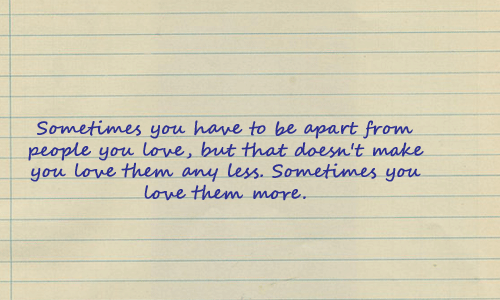 Sometimes you have to be apart from
people you love, but that doesn't make
you love them any less. Sometimes you
love them more.